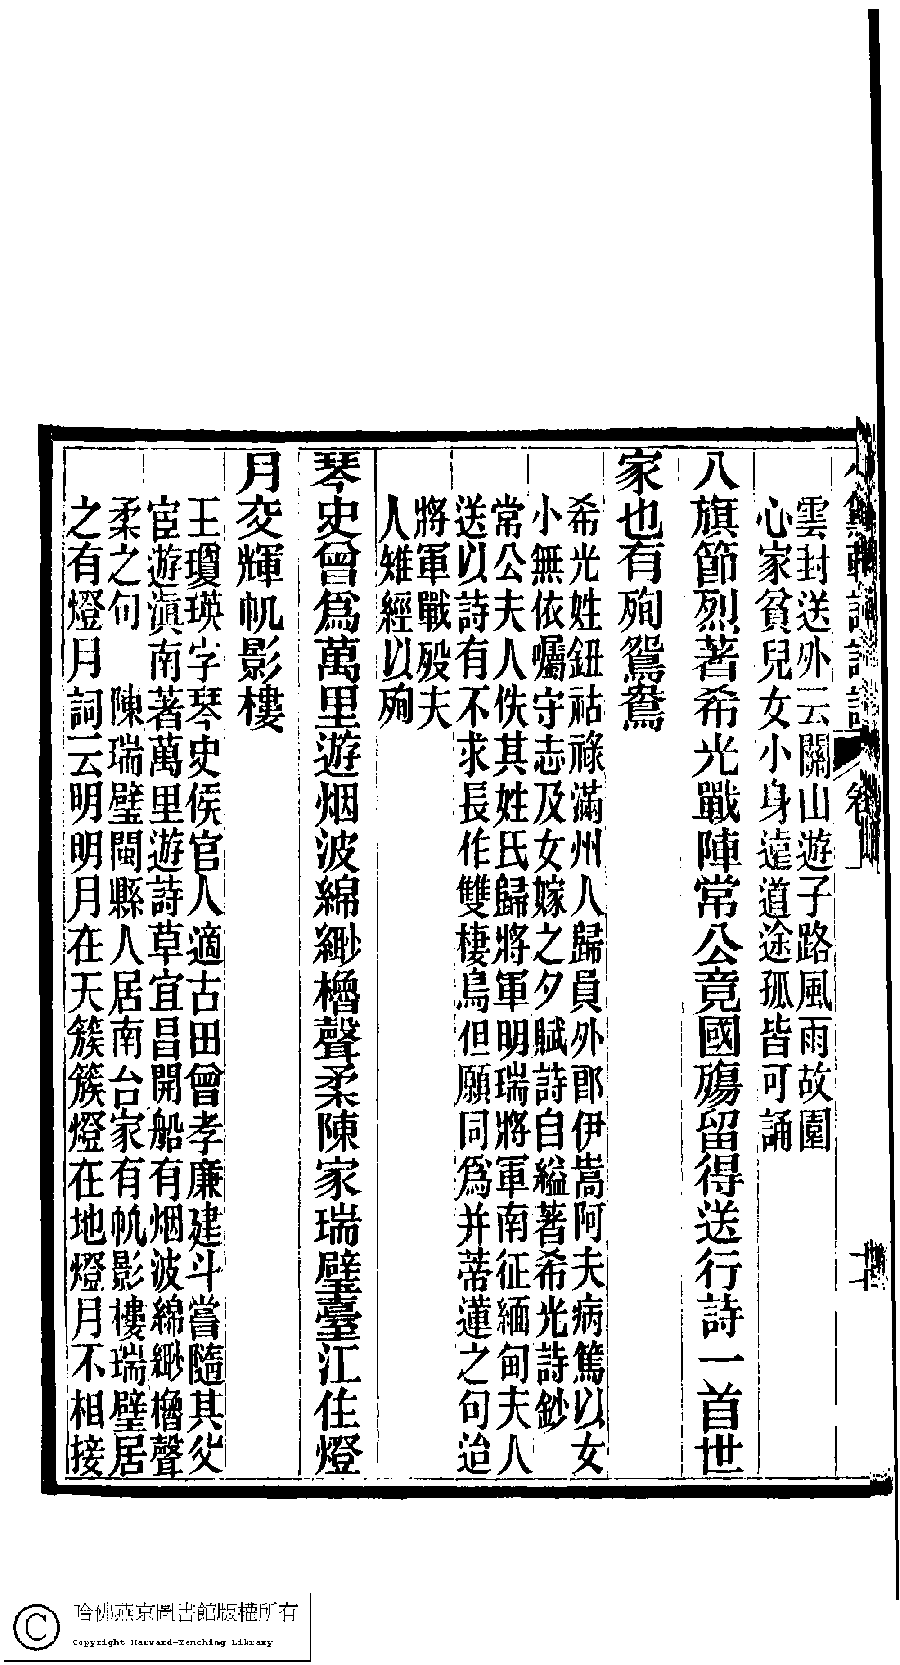 雲封送外云關山遊子路風雨故園
心家貧兒女小身遠道途孤皆可誦
八旗節烈著希光戰陣常公竟國殤留得送行詩一首世
家也有殉鴛鴦
希光姓鈕祜祿滿州人歸員外郎伊嵩阿夫病篤以女
小無依囑守志及女嫁之夕賦詩自縊著希光詩鈔
常公夫人佚其姓氏歸將軍明瑞將軍南征緬甸夫人
送以詩有不求長作雙棲鳥但願同爲并蒂蓮之句迨
將軍戰歿夫
人雉經以殉
琴史曾爲萬里遊烟波綿緲櫓聲柔陳家瑞璧臺江住燈
月交輝帆影樓
王瓊瑛字琴史侯官人適古田曾孝廉建斗嘗隨其父
宦遊滇南著萬里遊詩草宜昌開船有烟波綿緲櫓聲
柔之句 陳瑞璧閩縣人居南台家有帆影樓瑞璧居
之有燈月詞云明明月在天簇簇燈在地燈月不相接
哈佛燕京圖書館版權所有
Copyright Harvard-Yenching Library